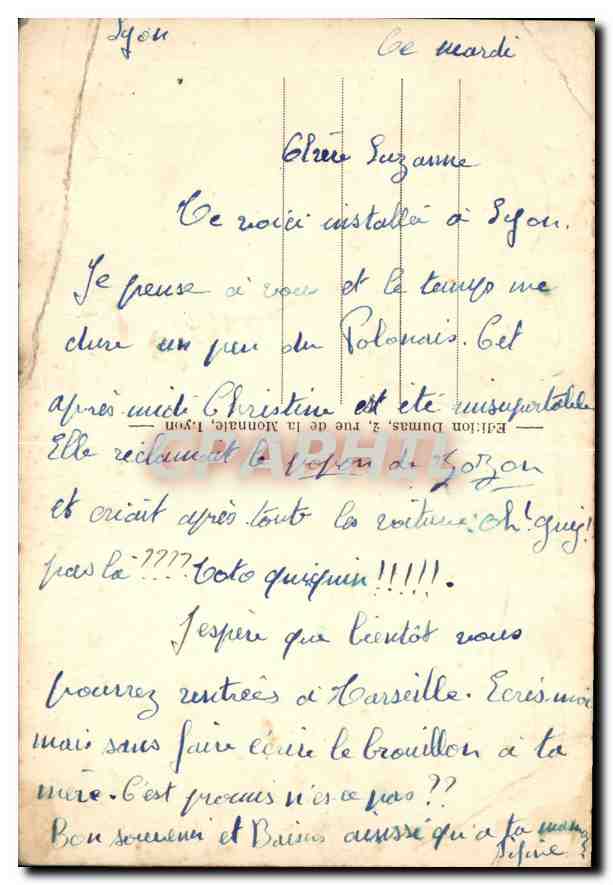 Lyon
Ce mardi
Chère Suzanne
Te voici installée à Lyon.
Je pense à vous et le temps me
dure un peu du Polonais. Cet
après midi Christine est été insuportable
— Edition Dumas, 2, rue de la Monnaie, Lyon —
Elle réclamait le popon de Zozon
CPAPHIL
et criait après toute les voiture: oh!
pas là ???? Toto quiquin !!!!!.
J'espère que bientôt vous
pourrez rentrées à Marseille. Ecrés moi
mais sans faire écrire le brouillon à ta
mère. C'est promis n'es ce pas ??
Bon souvenir et Baisers aussi qu'a ta maman